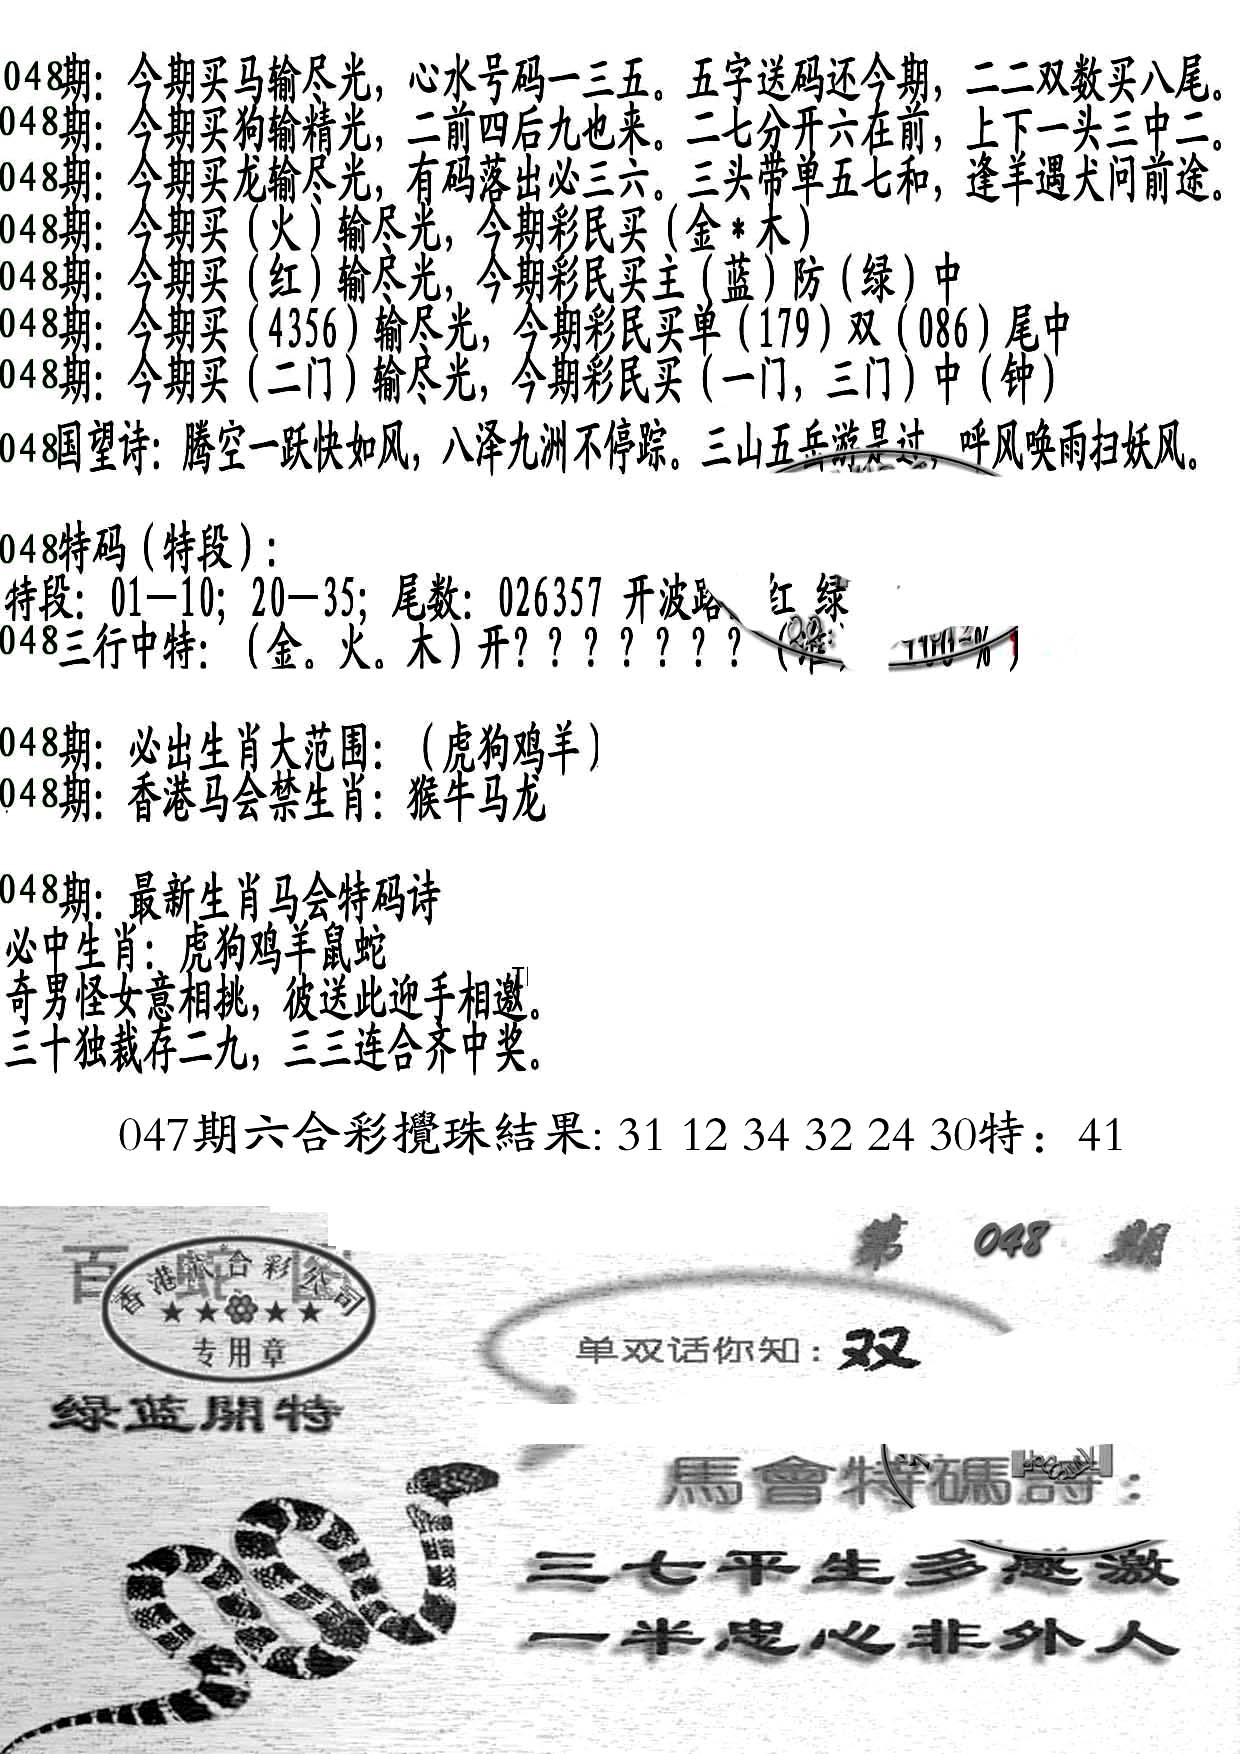 048期：今期买马输尽光，心水号码一三五。五字送码还今期，二二双数买八尾。
048期：今期买狗输精光，二前四后九也来。二七分开六在前，上下一头三中二。
048期：今期买龙输尽光，有码落出必三六。三头带单五七和，逢羊遇犬问前途。
048期：今期买（火）输尽光，今期彩民买（金*木）
048期：今期买（红）输尽光，今期彩民买主（蓝）防（绿）中
048期：今期买（4356）输尽光，今期彩民买单（179）双（086）尾中
048期：今期买（二门）输尽光，今期彩民买（一门，三门）中（钟）
048国望诗：腾空一跃快如风，八泽九洲不停踪。三山五岳游是过，呼风唤雨扫妖风。
048特码（特段）：
特段：01—10；20—35；尾数：026357 开波路 红 绿
048三行中特：（金。火。木）开？？？？？？？（准 100%）
048期：必出生肖大范围：（虎狗鸡羊）
048期：香港马会禁生肖：猴牛马龙
048期：最新生肖马会特码诗
必中生肖：虎狗鸡羊鼠蛇
奇男怪女意相挑，彼送此迎手相邀。
三十独裁存二九，三三连合齐中奖。
047期六合彩攪珠結果: 31 12 34 32 24 30特：41
第 048 期
百蛇
香港六合彩公司
★★★★
专用章
单双话你知：双
绿蓝開特
馬會特碼詩：
三七平生多感激
一半忠心非外人